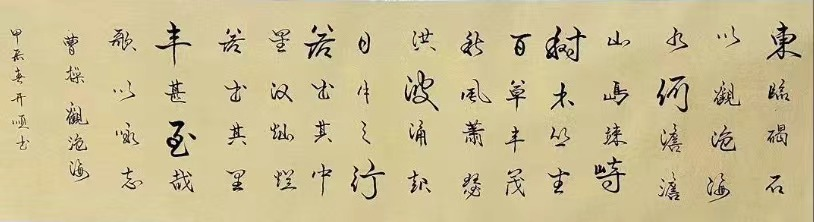 東臨碣石
以觀滄海
水何澹澹
山島竦峙
树木丛生
百草丰茂
秋風蕭瑟
洪波涌起
日月之行
若出其中
星汉灿烂
若出其里
幸甚至哉
歌以咏志
曹操觀滄海
甲辰春开顺书